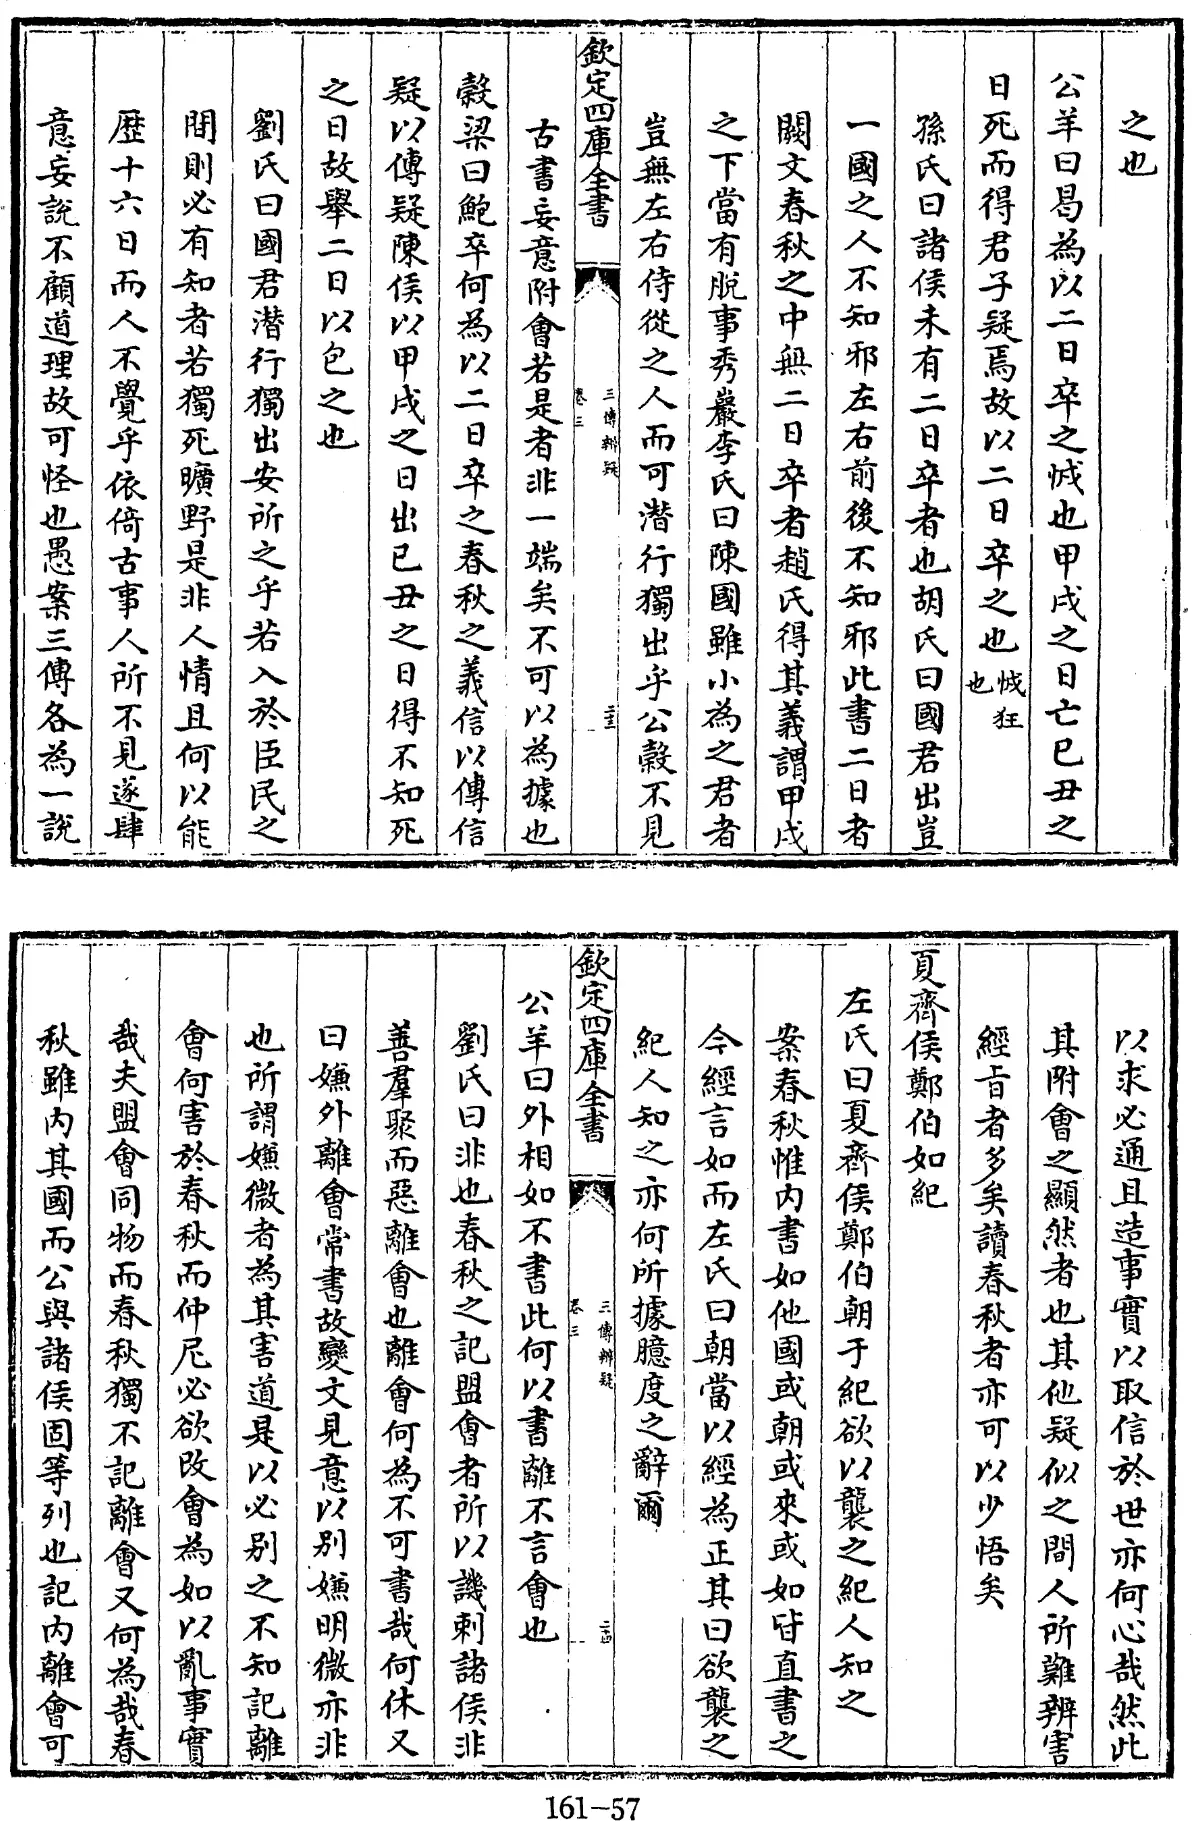 之也
公羊曰曷為以二日卒之怴也甲戌之日亡已丑之
日死而得君子疑焉故以二日卒之也怴狂也
孫氏曰諸侯未有二日卒者也胡氏曰國君出豈
一國之人不知邪左右前後不知邪此書二日者
闕文春秋之中無二日卒者趙氏得其義謂甲戌
之下當有脱事秀巖李氏曰陳國雖小為之君者
豈無左右侍從之人而可潛行獨出乎公穀不見
欽定四庫全書
三傳辨疑
卷三
二十三
古書妄意附會若是者非一端矣不可以為據也
穀梁曰鮑卒何為以二日卒之春秋之義信以傳信
疑以傳疑陳侯以甲戌之日出已丑之日得不知死
之日故舉二日以包之也
劉氏曰國君潛行獨出安所之乎若入於臣民之
間則必有知者若獨死曠野是非人情且何以能
歴十六日而人不覺乎依倚古事人所不見遂肆
意妄説不顧道理故可怪也愚案三傳各為一説
以求必通且造事實以取信於世亦何心哉然此
其附會之顯然者也其他疑似之間人所難辨害
經㫖者多矣讀春秋者亦可以少悟矣
夏齊侯鄭伯如紀
左氏曰夏齊侯鄭伯朝于紀欲以襲之紀人知之
案春秋惟内書如他國或朝或來或如皆直書之
今經言如而左氏曰朝當以經為正其曰欲襲之
紀人知之亦何所據臆度之辭爾
欽定四庫全書
三傳辨疑
卷三
二十四
公羊曰外相如不書此何以書離不言會也
劉氏曰非也春秋之記盟會者所以譏刺諸侯非
善羣聚而惡離會也離會何為不可書哉何休又
曰嫌外離會常書故變文見意以别嫌明微亦非
也所謂嫌微者為其害道是以必别之不知記離
會何害於春秋而仲尼必欲改會為如以亂事實
哉夫盟會同物而春秋獨不記離會又何為哉春
秋雖内其國而公與諸侯固等列也記内離會可
161-57